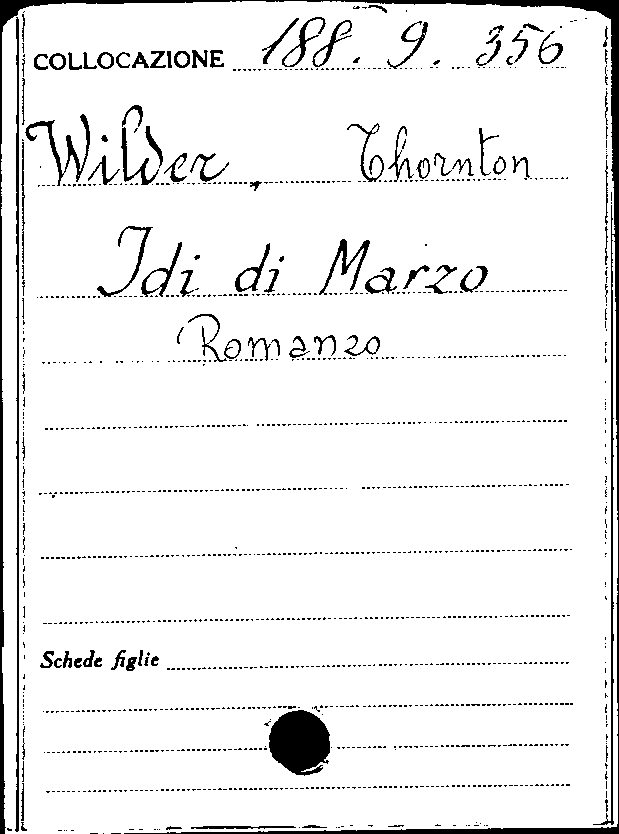 COLLOCAZIONE 188. 9. 356
Wilder, Thornton
Idi di Marzo
Romanzo
Schede figlie